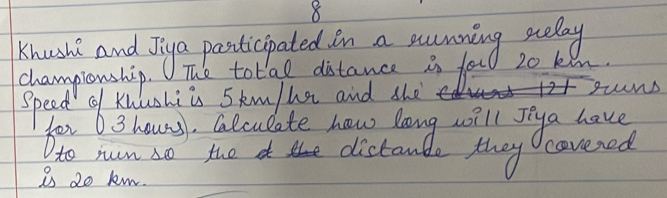 8
Khushi and Jiya participated in a running relay
championship. The total distance is for 20 km.
Speed of Khushi is 5km/hr and she runs
for 3 hours). Calculate how long will Jiya have
to run so the distande they covered
is 20 km.